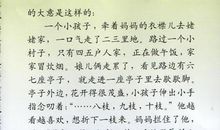 的大意是这样的：
一个小孩子，牵着妈妈的衣襟儿去姥
姥家，一口气走了二三里地。路过一个小
村子，只有四五户人家，正在做午饭，家
家冒炊烟。娘儿俩走累了，看见路边有六
七座亭子，就走进一座亭子里去歇歇脚。
亭子外边，花开得很茂盛，小孩子伸出小手
指念叨着：“……八枝，九枝，十枝。”他越
看越喜欢，想折下一枝来。妈妈拦住了他，